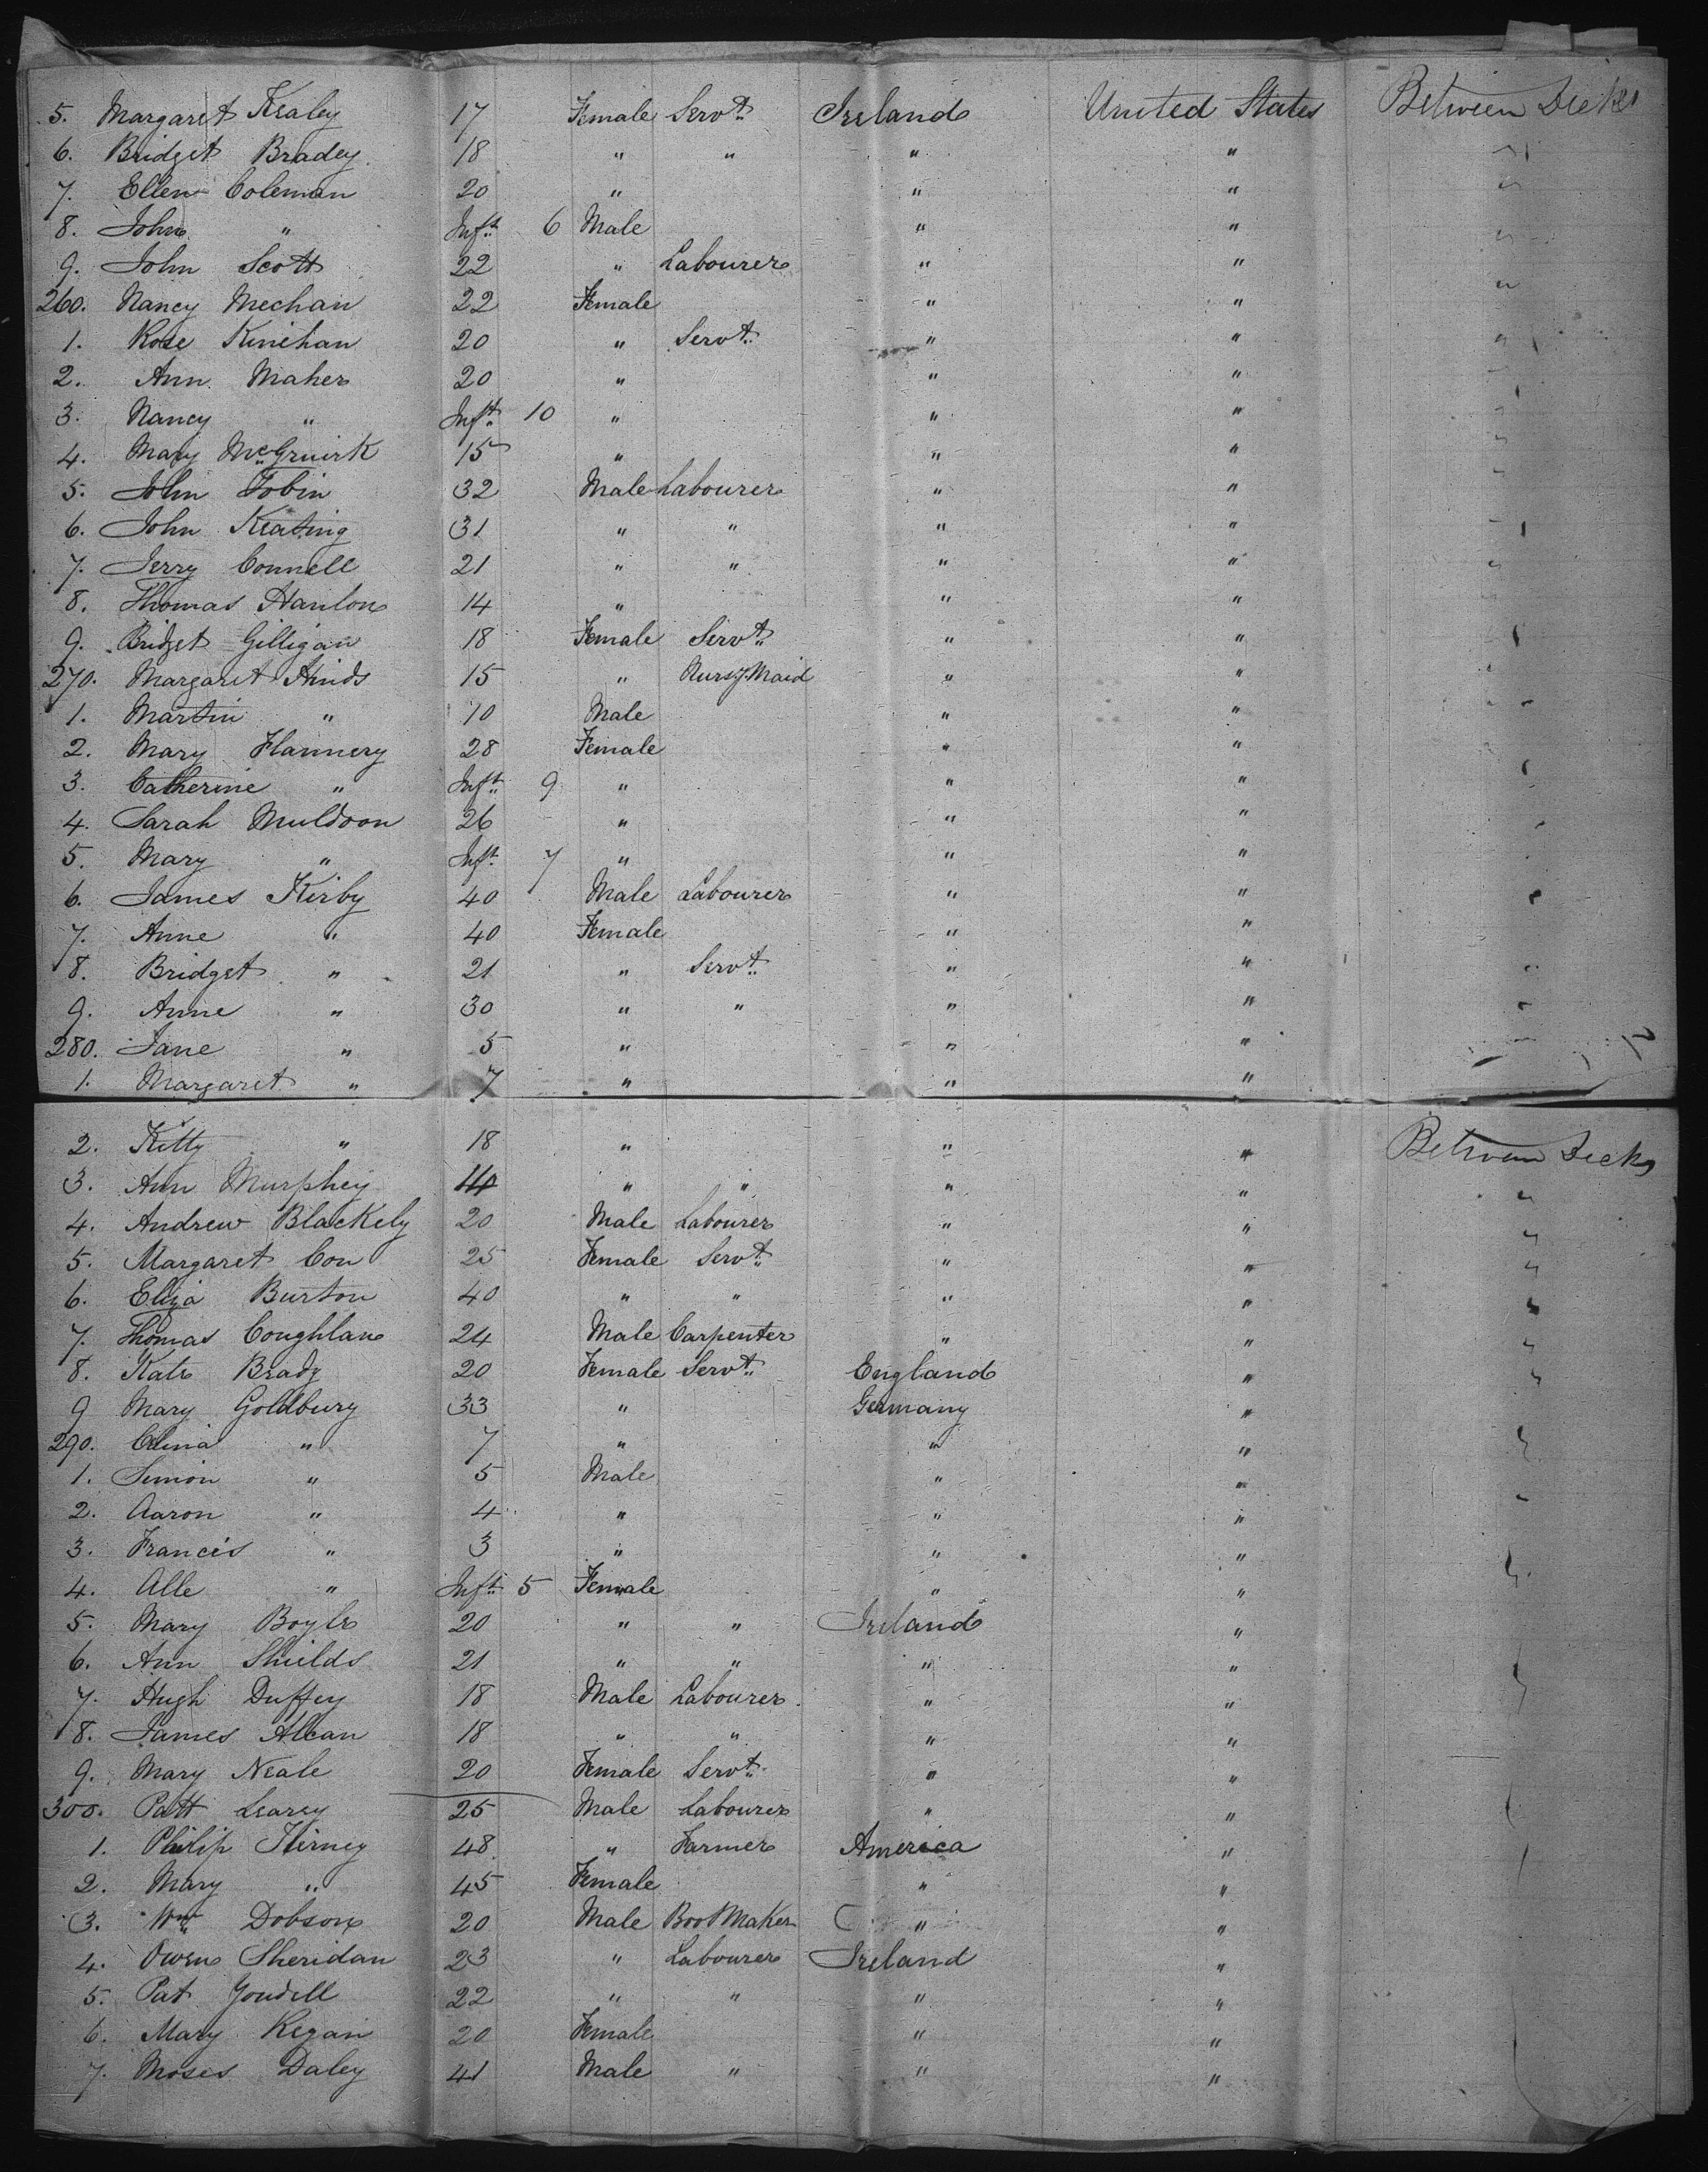 5. Margaret Kealey 17 Female Servt. Ireland United States Between Decks
6. Bridget Bradey 18 " " " " "
7. Ellen Coleman 20 " " " "
8. John " Inft. 6 Male " " "
9. John Scott 22 " Labourer " " "
260. Nancy Mechan 22 Female " " "
1. Rose Kinehan 20 " Servt. " " "
2. Ann Maher 20 " " " "
3. Nancy " Inft. 10 " " " "
4. Mary McGruirk 15 " " " "
5. John Tobin 32 Male Labourer " " "
6. John Keating 31 " " " " "
7. Jerry Connell 21 " " " " "
8. Thomas Hanlon 14 " " "
9. Bridget Gilligan 18 Female Servt. " " "
270. Margaret Hinds 15 " Nursy Maid " " "
1. Martin " 10 Male " " "
2. Mary Flannery 28 Female " " "
3. Catherine " Inft. 9 " " " "
4. Sarah Muldoon 26 " " " "
5. Mary " Inft. 7 " " "
6. James Kirby 40 Male Labourer " " "
7. Anne " 40 Female " "
8. Bridget " 21 " Servt. " " "
9. Anne " 30 " " " " "
280. Jane " 5 " " "
1. Margaret " 7 " " "
2. Kitty " 18 " " " Between Decks
3. Ann Murphey 40 " " " " "
4. Andrew Blackely 20 Male Labourer " " "
5. Margaret Con 25 Female Servt. " " "
6. Eliza Burton 40 " " " " "
7. Thomas Coughlan 24 Male Carpenter " " "
8. Kate Brady 20 Female Servt. England " "
9 Mary Goldbury 33 " Germany "
290. " 7 " " " "
1. Simon " 5 Male " "
2. Aaron " 4 " " " "
3. Francis " 3 " " "
4. Alle " Inft. 5 Female " " "
5. Mary Boyle 20 " " Ireland "
6. Ann Shields 21 " " " "
7. Hugh Duffey 18 Male Labourer " "
8. James Allean 18 " " " "
9. Mary Neale 20 Female Servt. " "
300. Patt Learey 25 Male Labourer " "
1. Philip Tierney 48 " Farmer America "
2. Mary " 45 Female " "
3. Wm. Dobson 20 Male Boot Maker " "
4. Owen Sheridan 23 " Labourer Ireland "
5. Pat Yondell 22 " " " "
6. Mary Regan 20 Female " "
7. Moses Daley 41 Male " " "